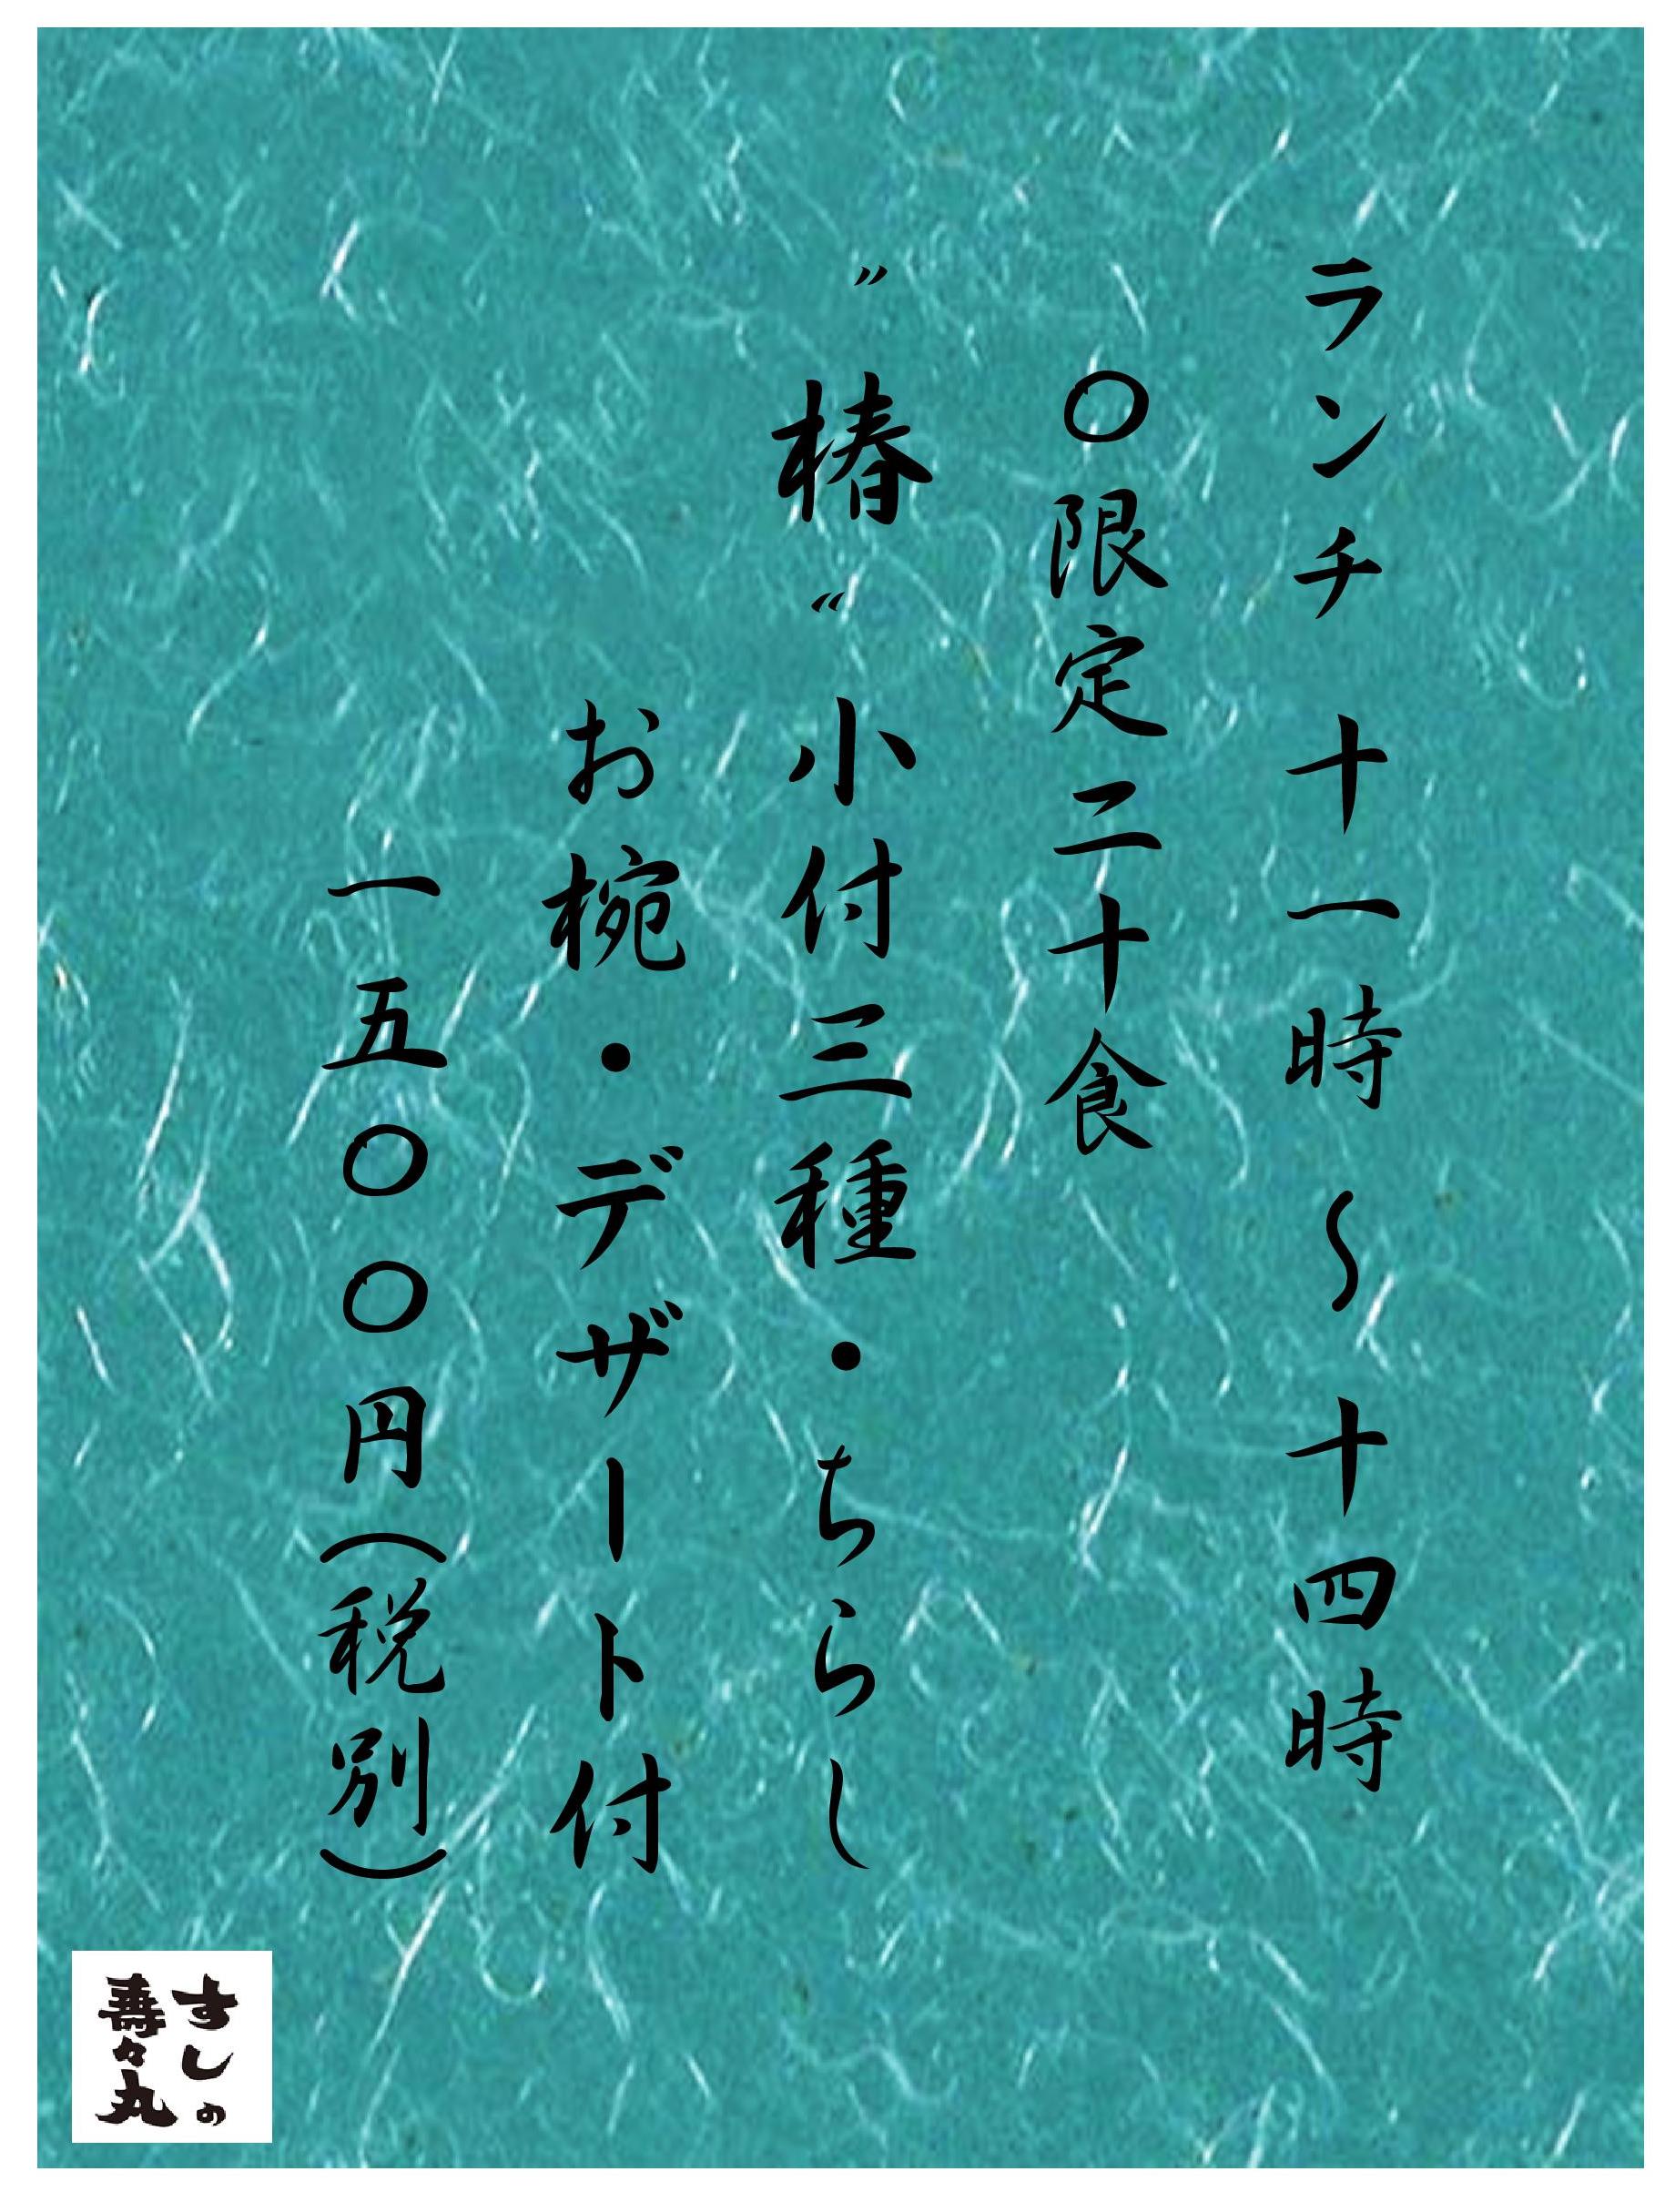 ランチ 十一時 〜 十四時
〇限定二十食
〝椿〟小付三種・ちらし
お椀・デザート付
一五〇〇円(税別)
すしの
壽々丸